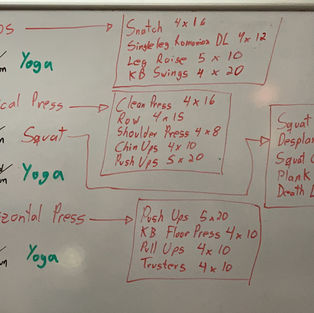 os
Snatch 4x16
Single leg Romanian DL 4x12
Leg Raise 5x10
KB Swings 4x20
Yoga
ical Press
Clean Press 4x16
Row 4x15
Shoulder Press 4x8
Chin Ups 4x10
Push Ups 5x20
Squat
Squat
Desplan
Squat
Plank
Death
Yoga
izontal Press
Push Ups 5x20
KB Floor Press 4x10
Pull Ups 4x10
Trusters 4x10
Yoga